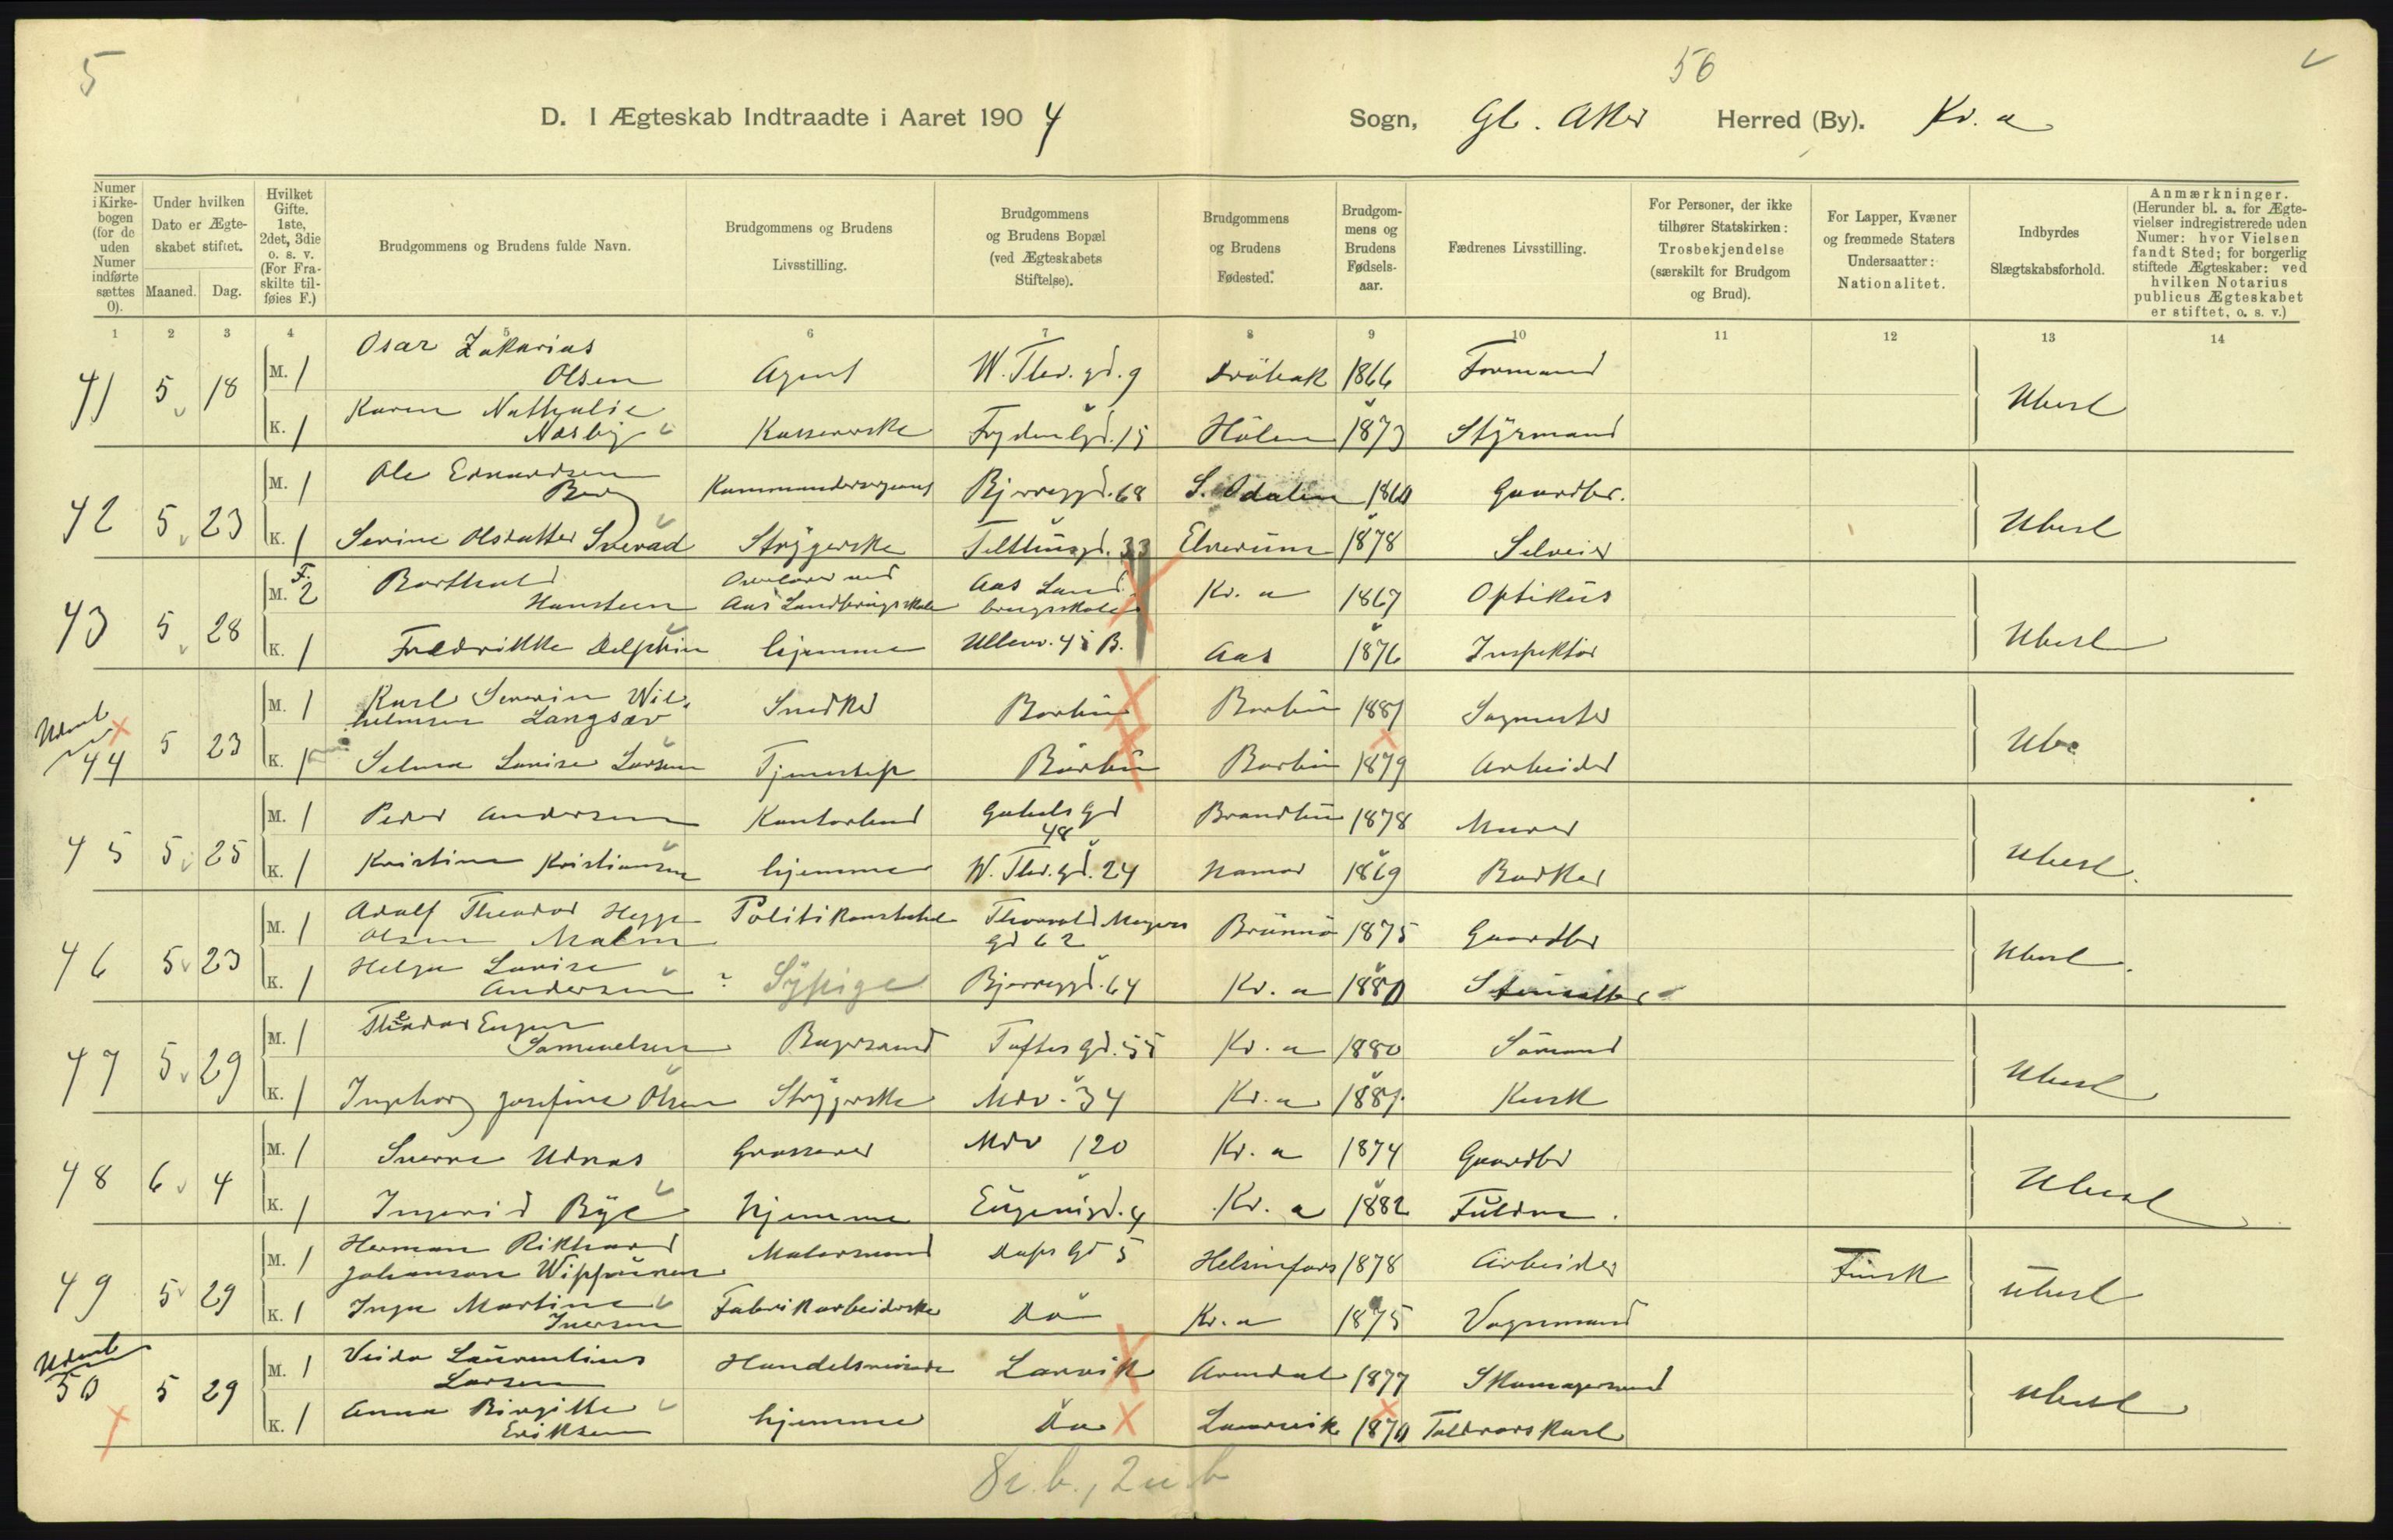 5
56
D. I Ægteskab Indtraadte i Aaret 1904 Sogn, Gl. Aker Herred (By). Kr. a
Numer i Kirkebogen (for de uden Numer indførte sættes 0).
Under hvilken Dato er Ægteskabet stiftet.
Maaned. Dag.
Hvilket Gifte. 1ste, 2det, 3die o. s. v. (For Fraskilte tilføies F.)
Brudgommens og Brudens fulde Navn.
Brudgommens og Brudens Livsstilling.
Brudgommens og Brudens Bopæl (ved Ægteskabets Stiftelse).
Brudgommens og Brudens Fødested.
Brudgommens og Brudens Fødselsaar.
Fædrenes Livsstilling.
For Personer, der ikke tilhører Statskirken: Trosbekjendelse (særskilt for Brudgom og Brud).
For Lapper, Kvæner og fremmede Staters Undersaatter: Nationalitet.
Indbyrdes Slægtskabsforhold.
Anmærkninger. (Herunder bl. a. for Ægtevielser indregistrerede uden Numer: hvor Vielsen fandt Sted; for borgerlig stiftede Ægteskaber: ved hvilken Notarius publicus Ægteskabet er stiftet, o. s. v.)
1 2 3 4 5 6 7 8 9 10 11 12 13 14
41 5 18 M. 1 Osar Zakarias Olsen Agent W. Thr. gd. 9 Dröbak 1866 Formand Ubesl
K. 1 Karen Nathalie Næsby Kassererske Frydenlgd. 15 Hölen 1873 Styrmand
42 5 23 M. 1 Ole Edvardsen Berg Kommandersergeant Bjerregd. 68 S. Odalen 1860 Gaardbr. Ubesl
K. 1 Serine Olsdatter Sverad Strygerske Telthusgd. 33 Elverum 1878 Selveier
43 5 28 M. F. 2 Barthold Hansteen Overlærer ved Aas Landbrugsskole Aas Landbrugsskole Kr. a 1867 Optikus Ubesl
K. 1 Fredrikke Delphin hjemme Ullev. 45 B. Aas 1876 Inspektør
Udenb
44 5 23 M. 1 Karl Severin Wilhelmsen Langsæv Snedker Borbu 1881 Sagmester Ube
K. 1 Selma Lovise Larsen Tjenestep Barbu Barbu 1879 Arbeider
45 5 25 M. 1 Peder Andersen Kontorbud Gabels gd 48 Brandbu 1878 Murer Ubesl.
K. 1 Kristine Kristiansen hjemme W. Thr. gd. 24 Hamar 1869 Bødker
46 5 23 M. 1 Adolf Theodor Hegge Olsen Malm Politikonstabel Thorvald Meyers gd 62 Brünnö 1875 Gaardbr Ubesl.
K. 1 Helga Lovise Andersen ? Sypige Bjerregd. 64 Kr. a 1880
47 5 29 M. 1 Theodor Eugen Samuelsen Bagersvend Toftes gd. 55 Kr. a 1880 Sömand Ubesl
K. 1 Ingeborg Josefine Olsen Strygerske Mdv. 34 Kr. a 1881 Kusk
48 6 4 M. 1 Sverre Udnæs Grosserer Mdv 120 Kr. a 1874 Gaardbr Ubesl
K. 1 Ingerid Bye hjemme Eugenisgd. 4 Kr. a 1882 Fuldm.
49 5 29 M. 1 Herman Rikhard Johanson Wippunen Malersvend Daps gd 5 Helsinfors 1878 Arbeider Finsk Ubesl
K. 1 Inga Martine Iversen Fabrikarbeiderske Do Kr. a 1875 Vognmand
Udenb
50 5 29 M. 1 Laurentius Larsen Handelsreisende Larvik Arendal 1877 Skomagersvend Ubesl
K. 1 Anna Birgitte Eriksen hjemme Do Laurvik 1870 Toldrorskarl
8 i. b., 2 u. b